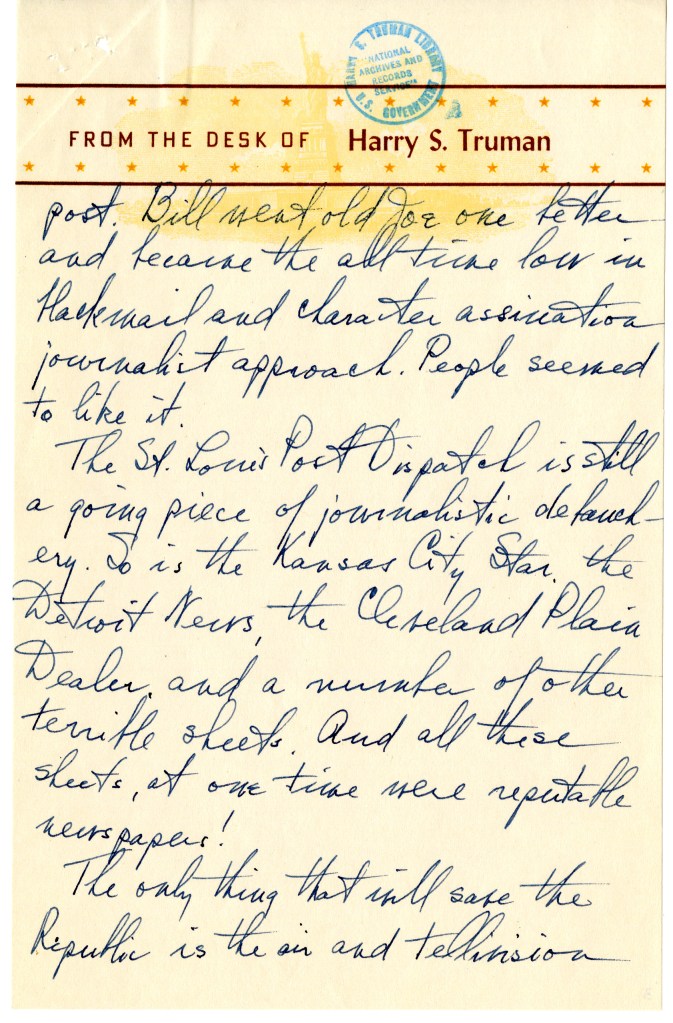 HARRY S. TRUMAN LIBRARY
"NATIONAL
ARCHIVES AND
RECORDS
SERVICE"
U.S. GOVERNMENT
FROM THE DESK OF Harry S. Truman
post. Bill went old Joe one better
and became the all time low in
blackmail and character assination
journalist approach. People seemed
to like it.
The St. Louis Post Dispatch is still
a going piece of journalistic debauch-
ery. So is the Kansas City Star, the
Detroit News, the Cleveland Plain
Dealer, and a number of other
terrible sheets. And all these
sheets, at one time were reputable
newspapers!
The only thing that will save the
Republic is the air and tellivision